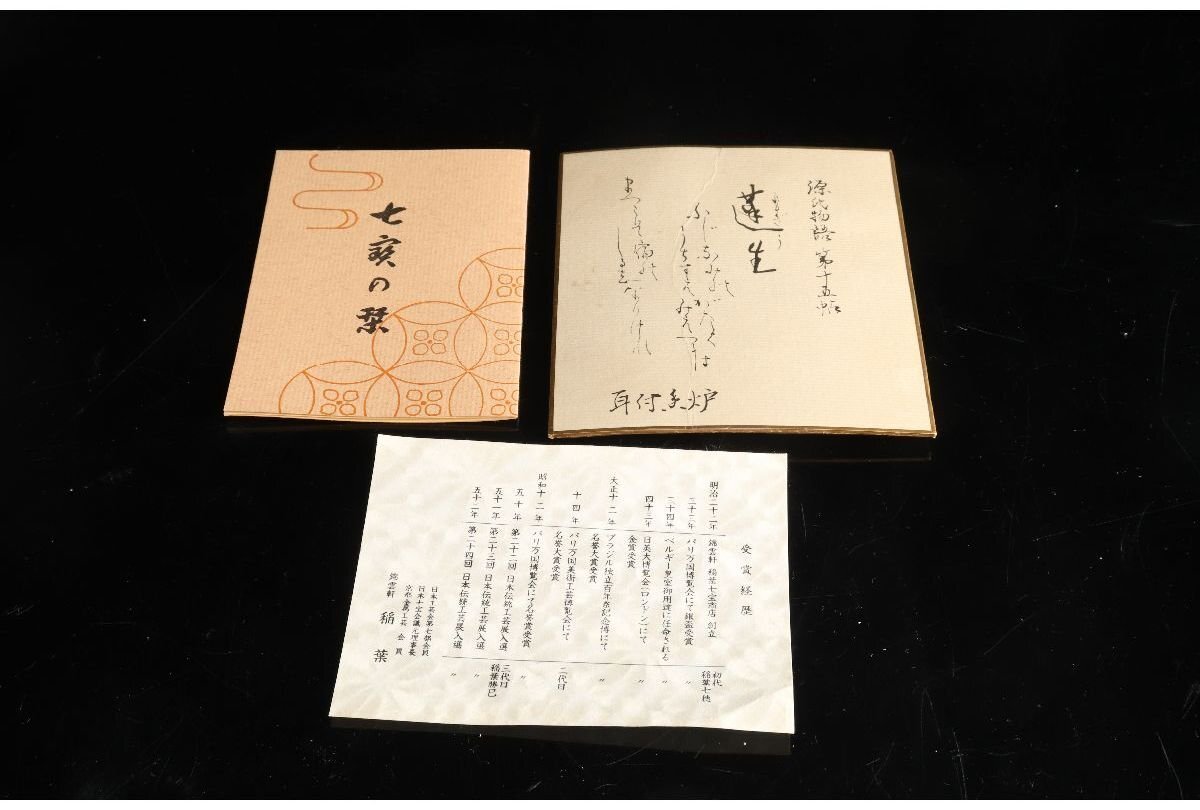 七宝の栞
源氏物語 第十五帖
よもぎう
蓬生
耳付香炉
受賞経歴
明治二十二年 錦雲軒 稲葉七宝商店 創立 初代 稲葉七穂
三十三年 パリ万国博覧会にて銀盃受賞 〃
三十四年 ベルギー皇室御用達に任命される 〃
四十三年 日英大博覧会(ロンドン)にて金賞受賞 〃
大正十一年 ブラジル独立百年祭記念博にて名誉大賞受賞 〃
十四年 パリ万国美術工芸博覧会にて名誉大賞受賞 二代目
昭和十二年 パリ万国博覧会にて名誉賞受賞 〃
五十年 第二十二回 日本伝統工芸展入選 三代目 稲葉勝巳
五十一年 第二十三回 日本伝統工芸展入選 〃
五十二年 第二十四回 日本伝統工芸展入選 〃
日本工芸会第七部会員
日本七宝会議元理事長
京都金属工芸会員
錦雲軒 稲葉